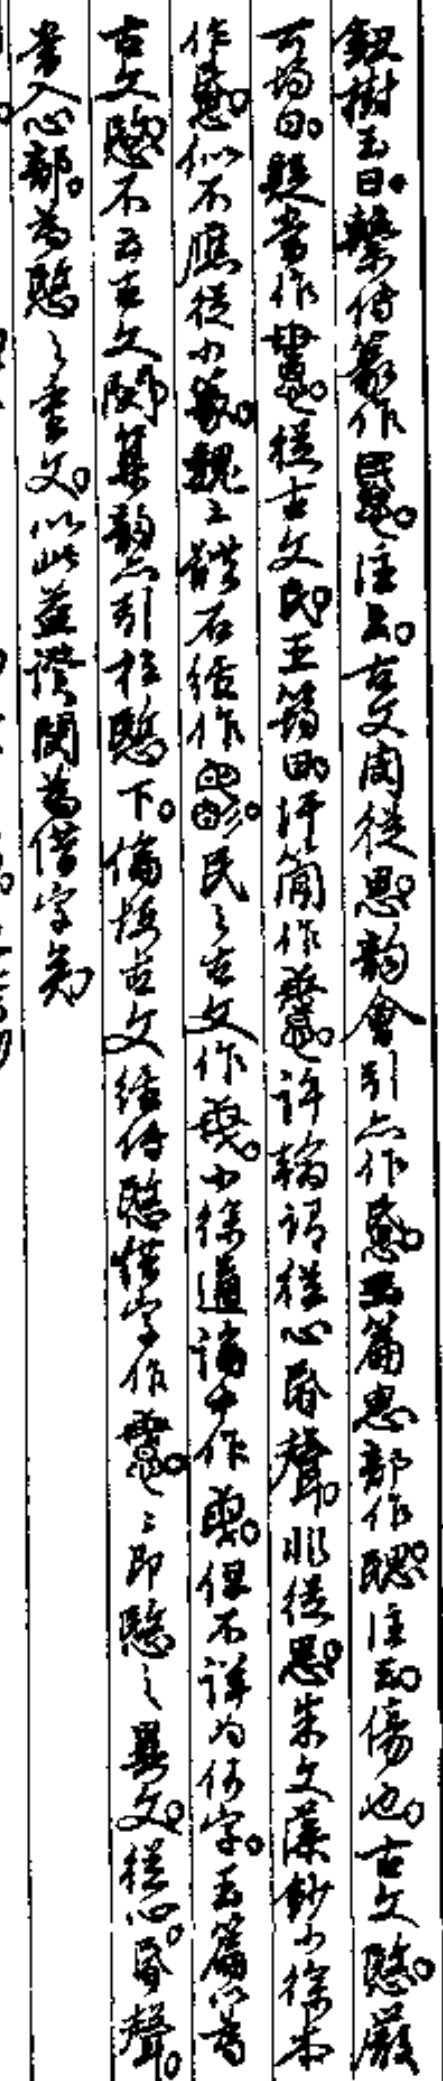 鈕樹玉曰。繫传篆作𢡱。注云。古文閔從思。韵會引亦作惽。玉篇思部作𢡱。注云。傷也。古文愍。嚴
可均曰。疑當作𢡱。從古文民。王筠曰。汗簡作𢡱。許翰謂從心昏聲。非從思。朱文藻鈔小徐本
作惽。似不應從小篆。魏三體石經作。民之古文作。小徐通論中作。但不詳为何字。玉篇以为
古文愍。不云古文閔。集韵亦引在愍下。僞埃古文經传愍借字作。即愍之異文。從心。昏聲。
當入心部。为愍之重文。以此益證閔为借字矣